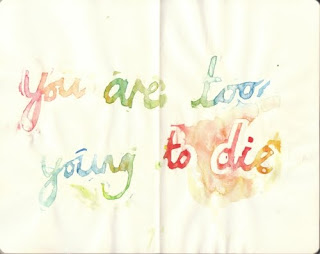 you are too
young to die